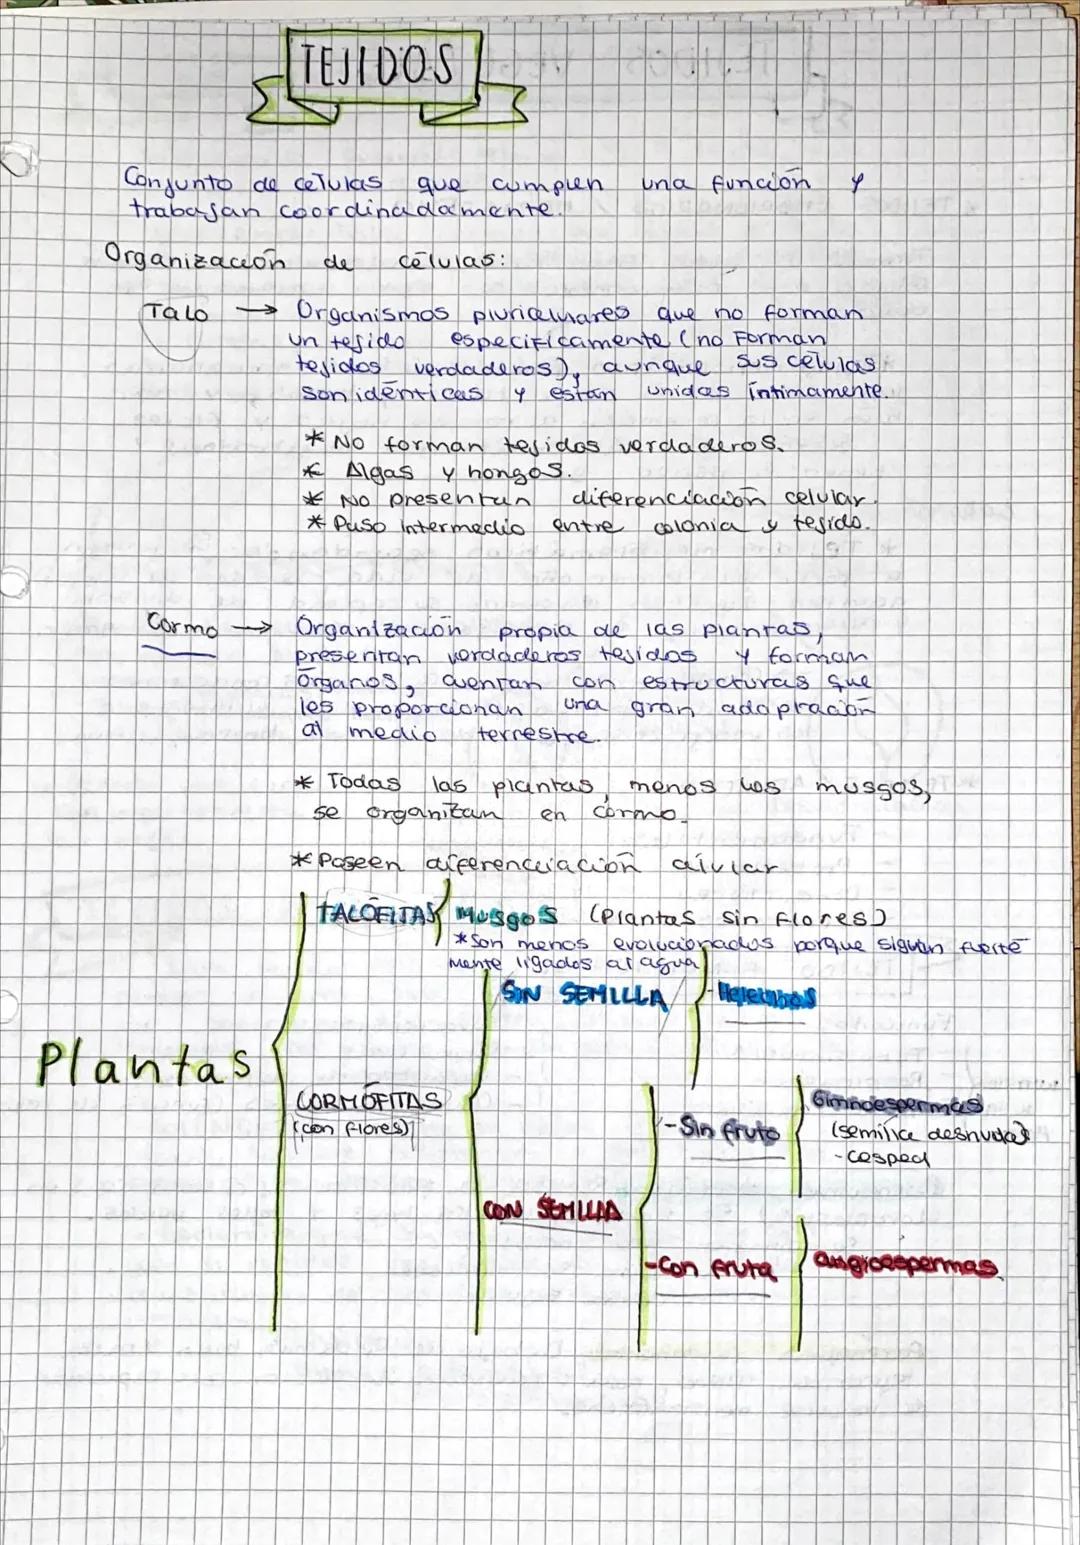 TEJIDOS
Conjunto de células que cumplen una función y
trabajan coordinadamente.
Organización de células:
Talo → Organismos pluricelulares que no forman
un tejido especificamente (no Forman
tejidos verdaderos), aunque sus células
son idénticas y están unidas íntimamente.
* No forman tejidos verdaderos.
* Algas y hongos.
* No presentan diferenciación celular.
* Paso intermedio entre colonia y tejido.
Cormo → Organización propia de las plantas,
presentan verdaderos tejidos y forman
Órganos, cuentan con estructuras que
les proporcionan una gran adaptación
al medio terrestre.
* Todas las plantas, menos los musgos,
se organizan en cormo.
* Poseen diferenciación celular
TALÓFITAS Musgos (Plantas sin flores)
* Son menos evolucionados porque siguen fuerte
mente ligados al agua
SIN SEMILLA - Helechos
Plantas
CORMÓFITAS
(con flores)
- Sin fruto
Gimnoespermas
(semilla desnuda)
- cesped
CON SEMILLA
- Con fruta
angioespermas.